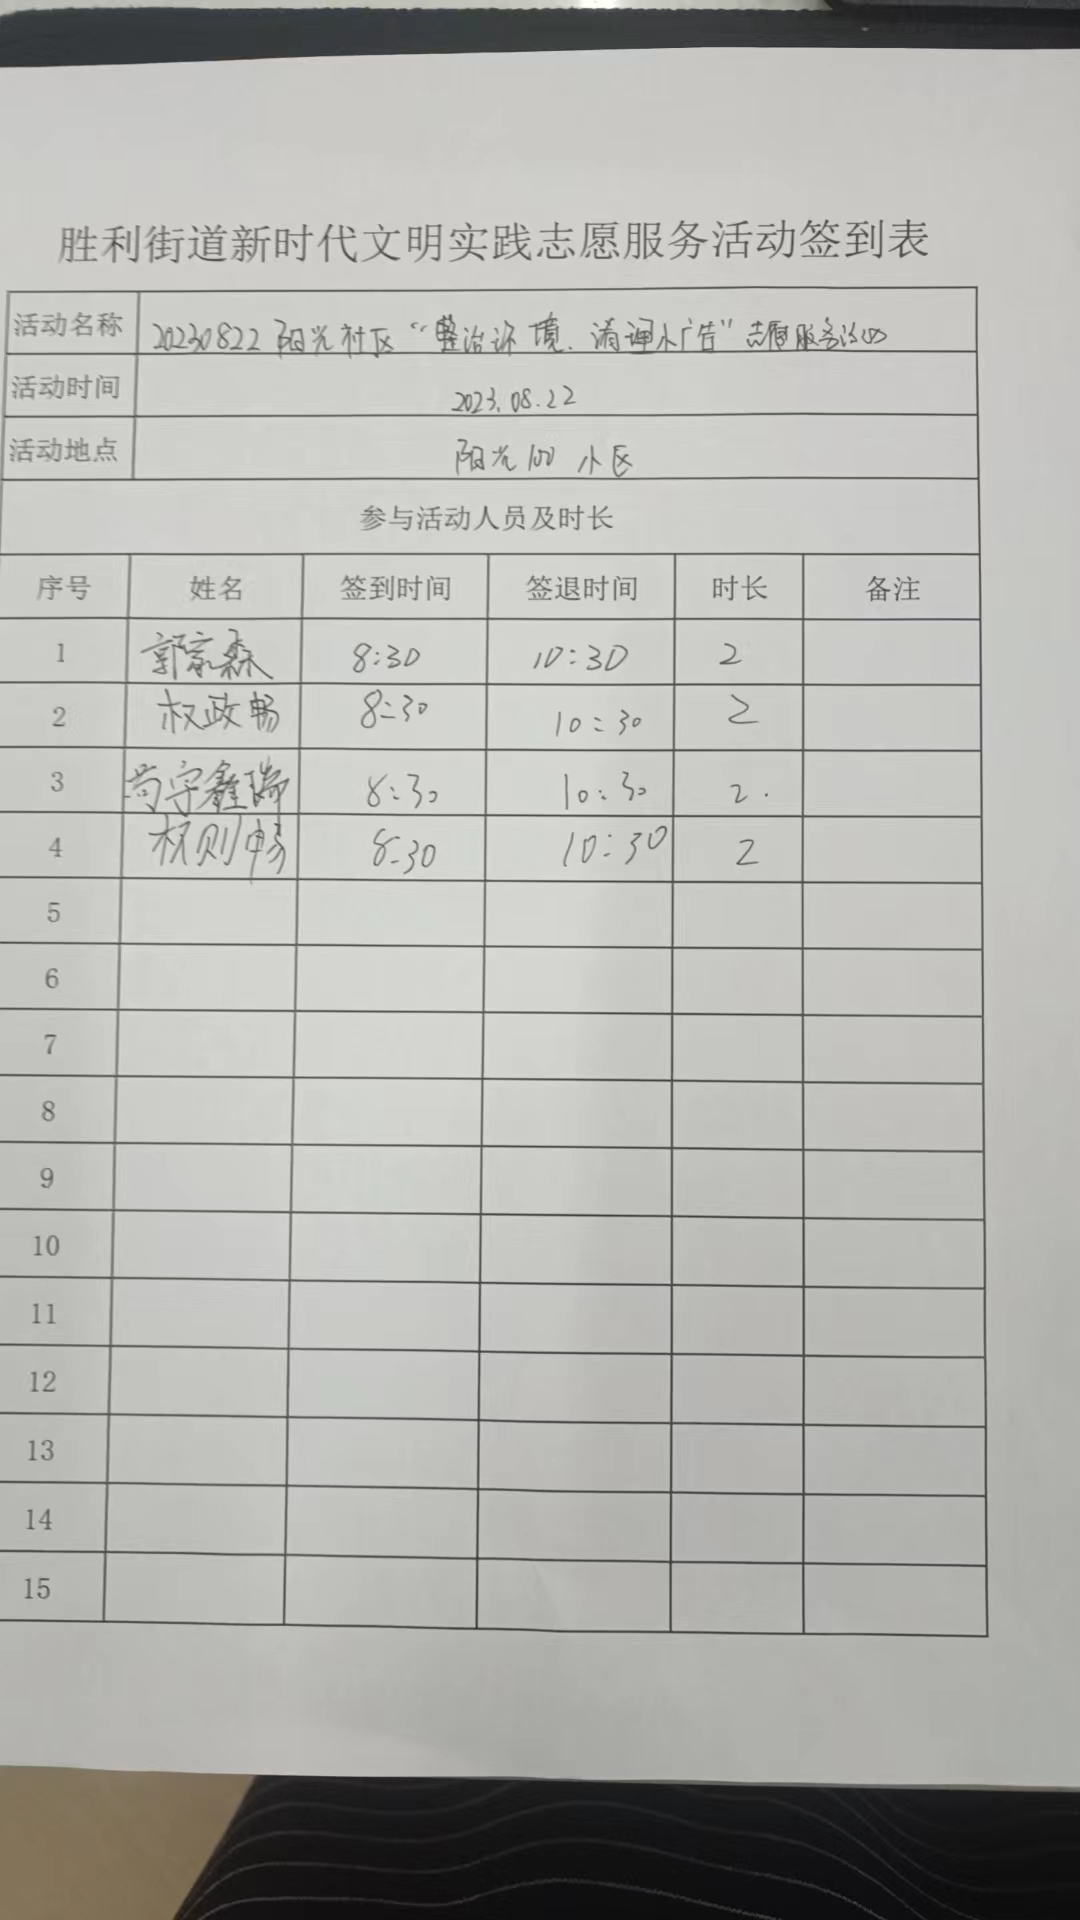 胜利街道新时代文明实践志愿服务活动签到表
活动名称 20230822阳光社区“整治环境、清理小广告”志愿服务活动
活动时间 2023.08.22
活动地点 阳光100小区
参与活动人员及时长
序号 姓名 签到时间 签退时间 时长 备注
1 郭家森 8:30 10:30 2
2 权政畅 8:30 10:30 2
3 苟宇鑫瑞 8:30 10:30 2.
4 权则畅 8:30 10:30 2
5
6
7
8
9
10
11
12
13
14
15